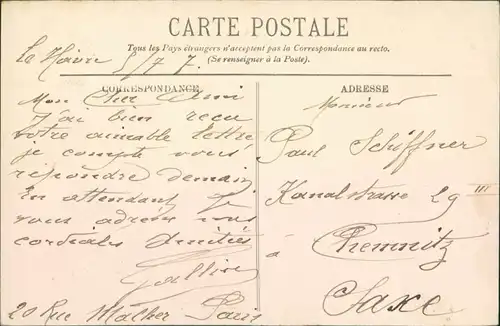 CARTE POSTALE
Tous les Pays étrangers n'acceptent pas la Correspondance au recto.
(Se renseigner à la Poste).
Le Hâvre 5/7 7.
CORRESPONDANCE
Mon Cher Ami
J'ai bien reçu
votre aimable lettre
je compte vous
répondre demain
En attendant je
vous adresse mes
cordiales Amitiés
20 Rue Malher Paris
ADRESSE
Monsieur
Paul Schiffner
Kanalstrasse 29 III
à Chemnitz
Saxe